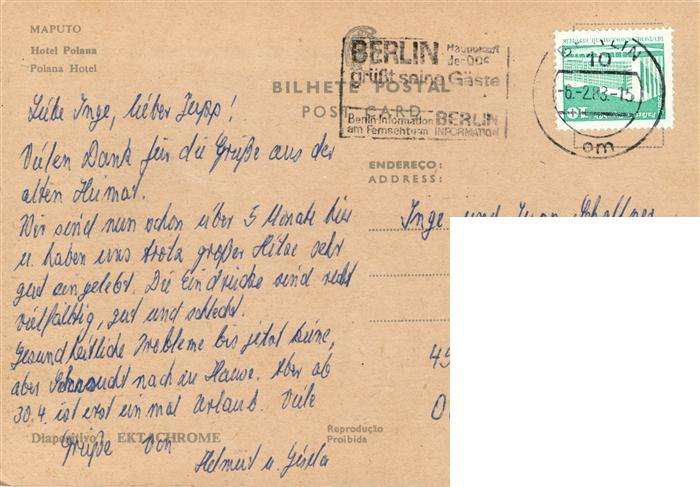 MAPUTO
Hotel Polana
Polana Hotel
BILHETE POSTAL
POST CARD
BERLIN
Hauptstadt
der DDR
grüßt seine Gäste
Berlin Information
am Fernsehturm
BERLIN
INFORMATION
BERLIN
10
-6.-2.83.-15
om
Liebe Inge, lieber Jupp!
Vielen Dank für die Grüße aus der
alten Heimat.
Wir sind nun schon über 5 Monate hier
u. haben uns trotz großer Hitze sehr
gut eingelebt. Die Eindrücke sind recht
vielfältig, gut und schlecht.
Gesundheitliche Probleme bis jetzt keine,
aber Sehnsucht nach zu Hause. Aber ab
30.4. ist erst einmal Urlaub. Viele
Grüße von
Helmut u. Gisela
ENDEREÇO:
ADDRESS:
Inge und
Diapositivo EKTACHROME
Reprodução
Proibida